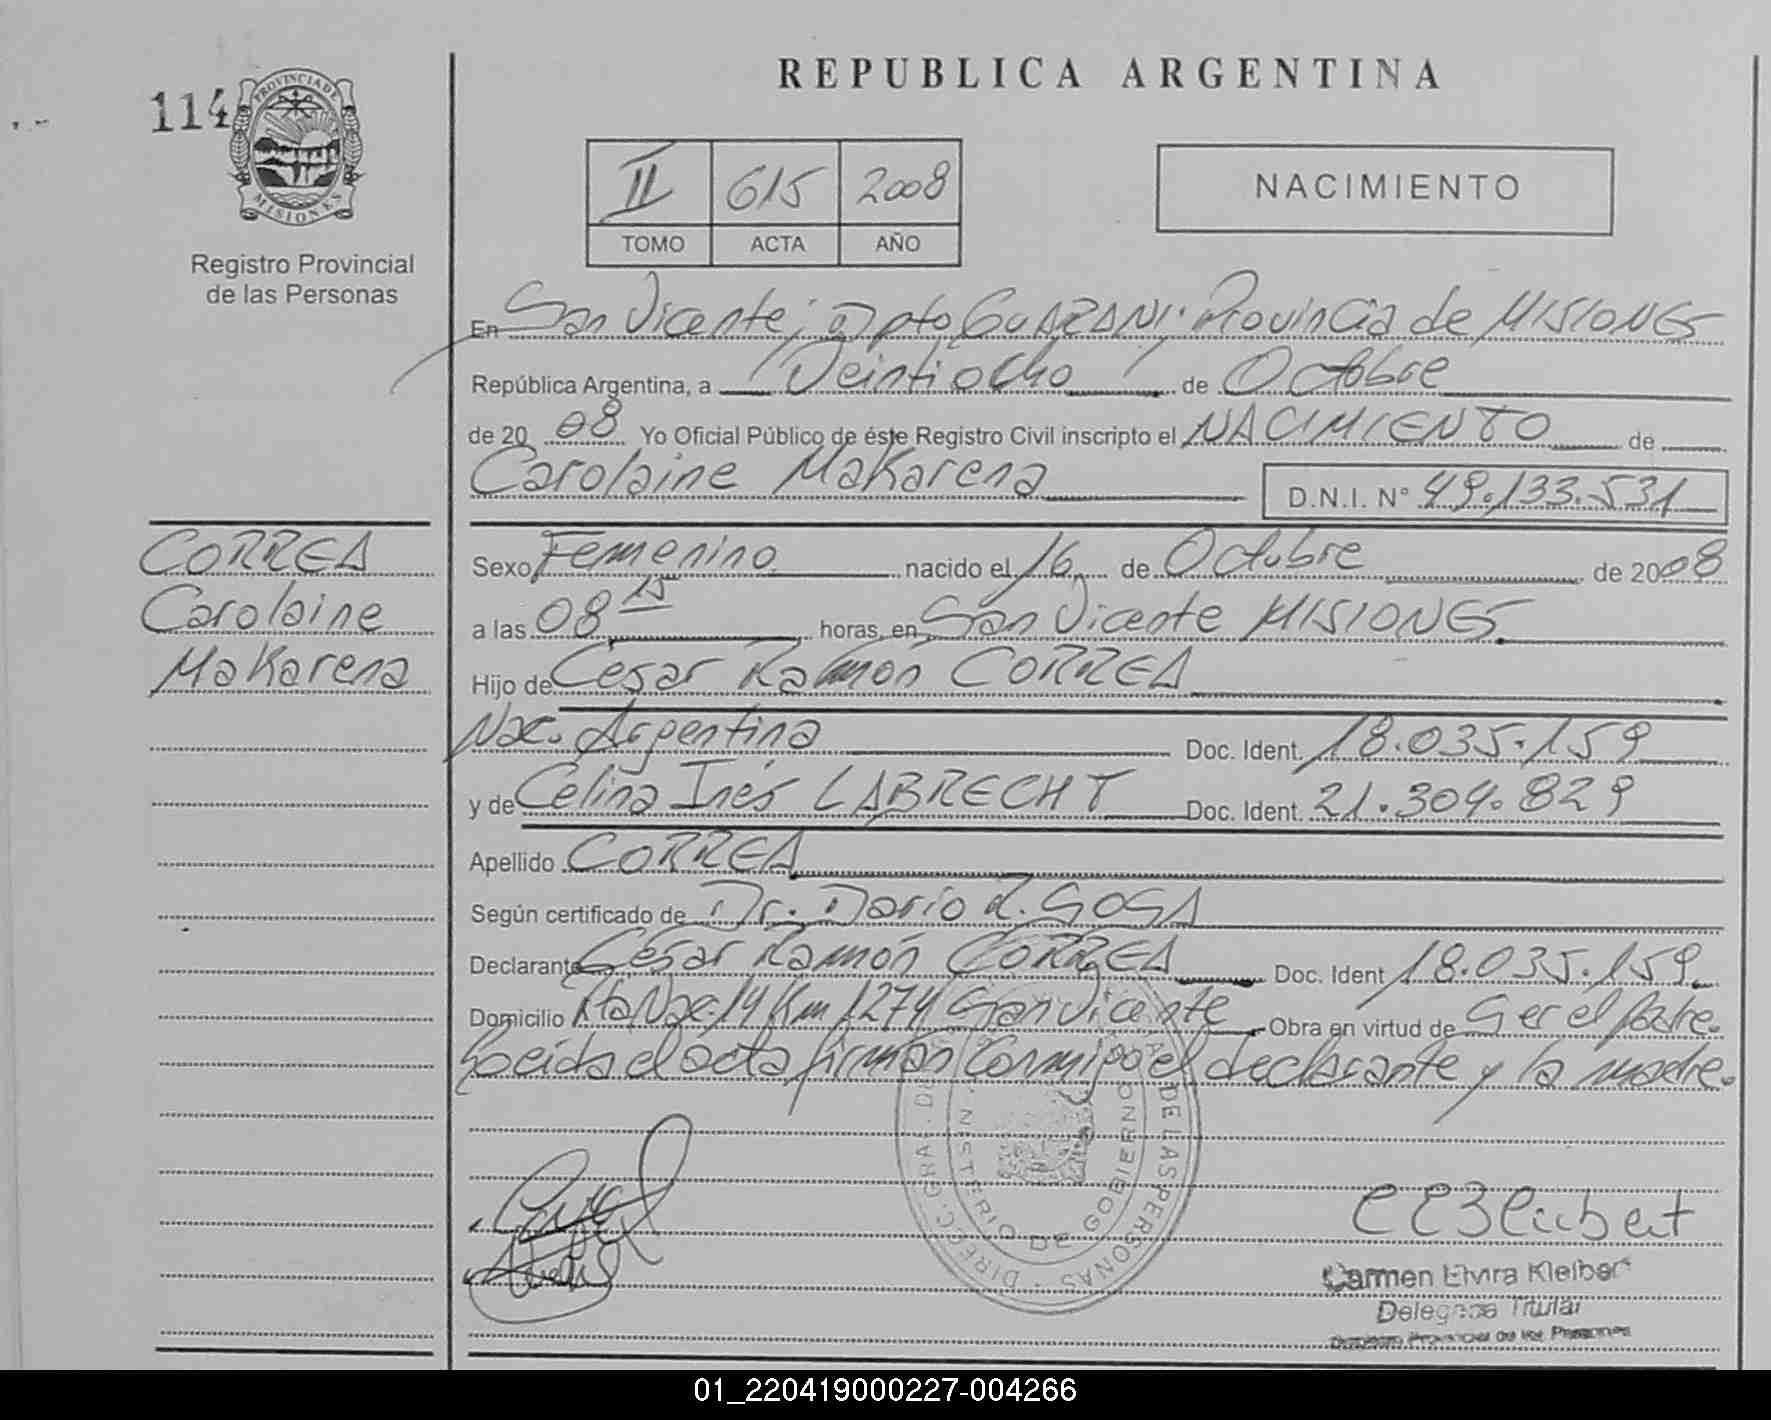 REPUBLICA ARGENTINA
114
PROVINCIA DE
MISIONES
Registro Provincial
de las Personas
II 615 2008
TOMO ACTA AÑO
NACIMIENTO
En San Vicente, Dpto GUARANI; Provincia de MISIONES
República Argentina, a Veintiocho de Octubre
de 2008 Yo Oficial Público de éste Registro Civil inscripto el NACIMIENTO de
Carolaine Makarena D.N.I. N° 49.133.531
CORREA
Carolaine
Makarena
Sexo Femenino nacido el 16 de Octubre de 2008
a las 08 15 horas, en San Vicente MISIONES
Hijo de César Ramón CORREA
Nac. Argentina Doc. Ident. 18.035.159
y de Celina Inés LABRECHT Doc. Ident. 21.304.829
Apellido CORREA
Según certificado de Dr. Dario R. SOSA
Declarante César Ramón CORREA Doc. Ident 18.035.159
Domicilio Rta Nac. 14 Km 1274 San Vicente Obra en virtud de Ser el Padre.
Leida el acta firman conmigo el declarante y la madre.
DIRECC. GRAL. DE LAS PERSONAS
MINISTERIO DE GOBIERNO
Carmen Elvira Kleibert
Delegada Titular
Registro Provincial de las Personas
01_220419000227-004266